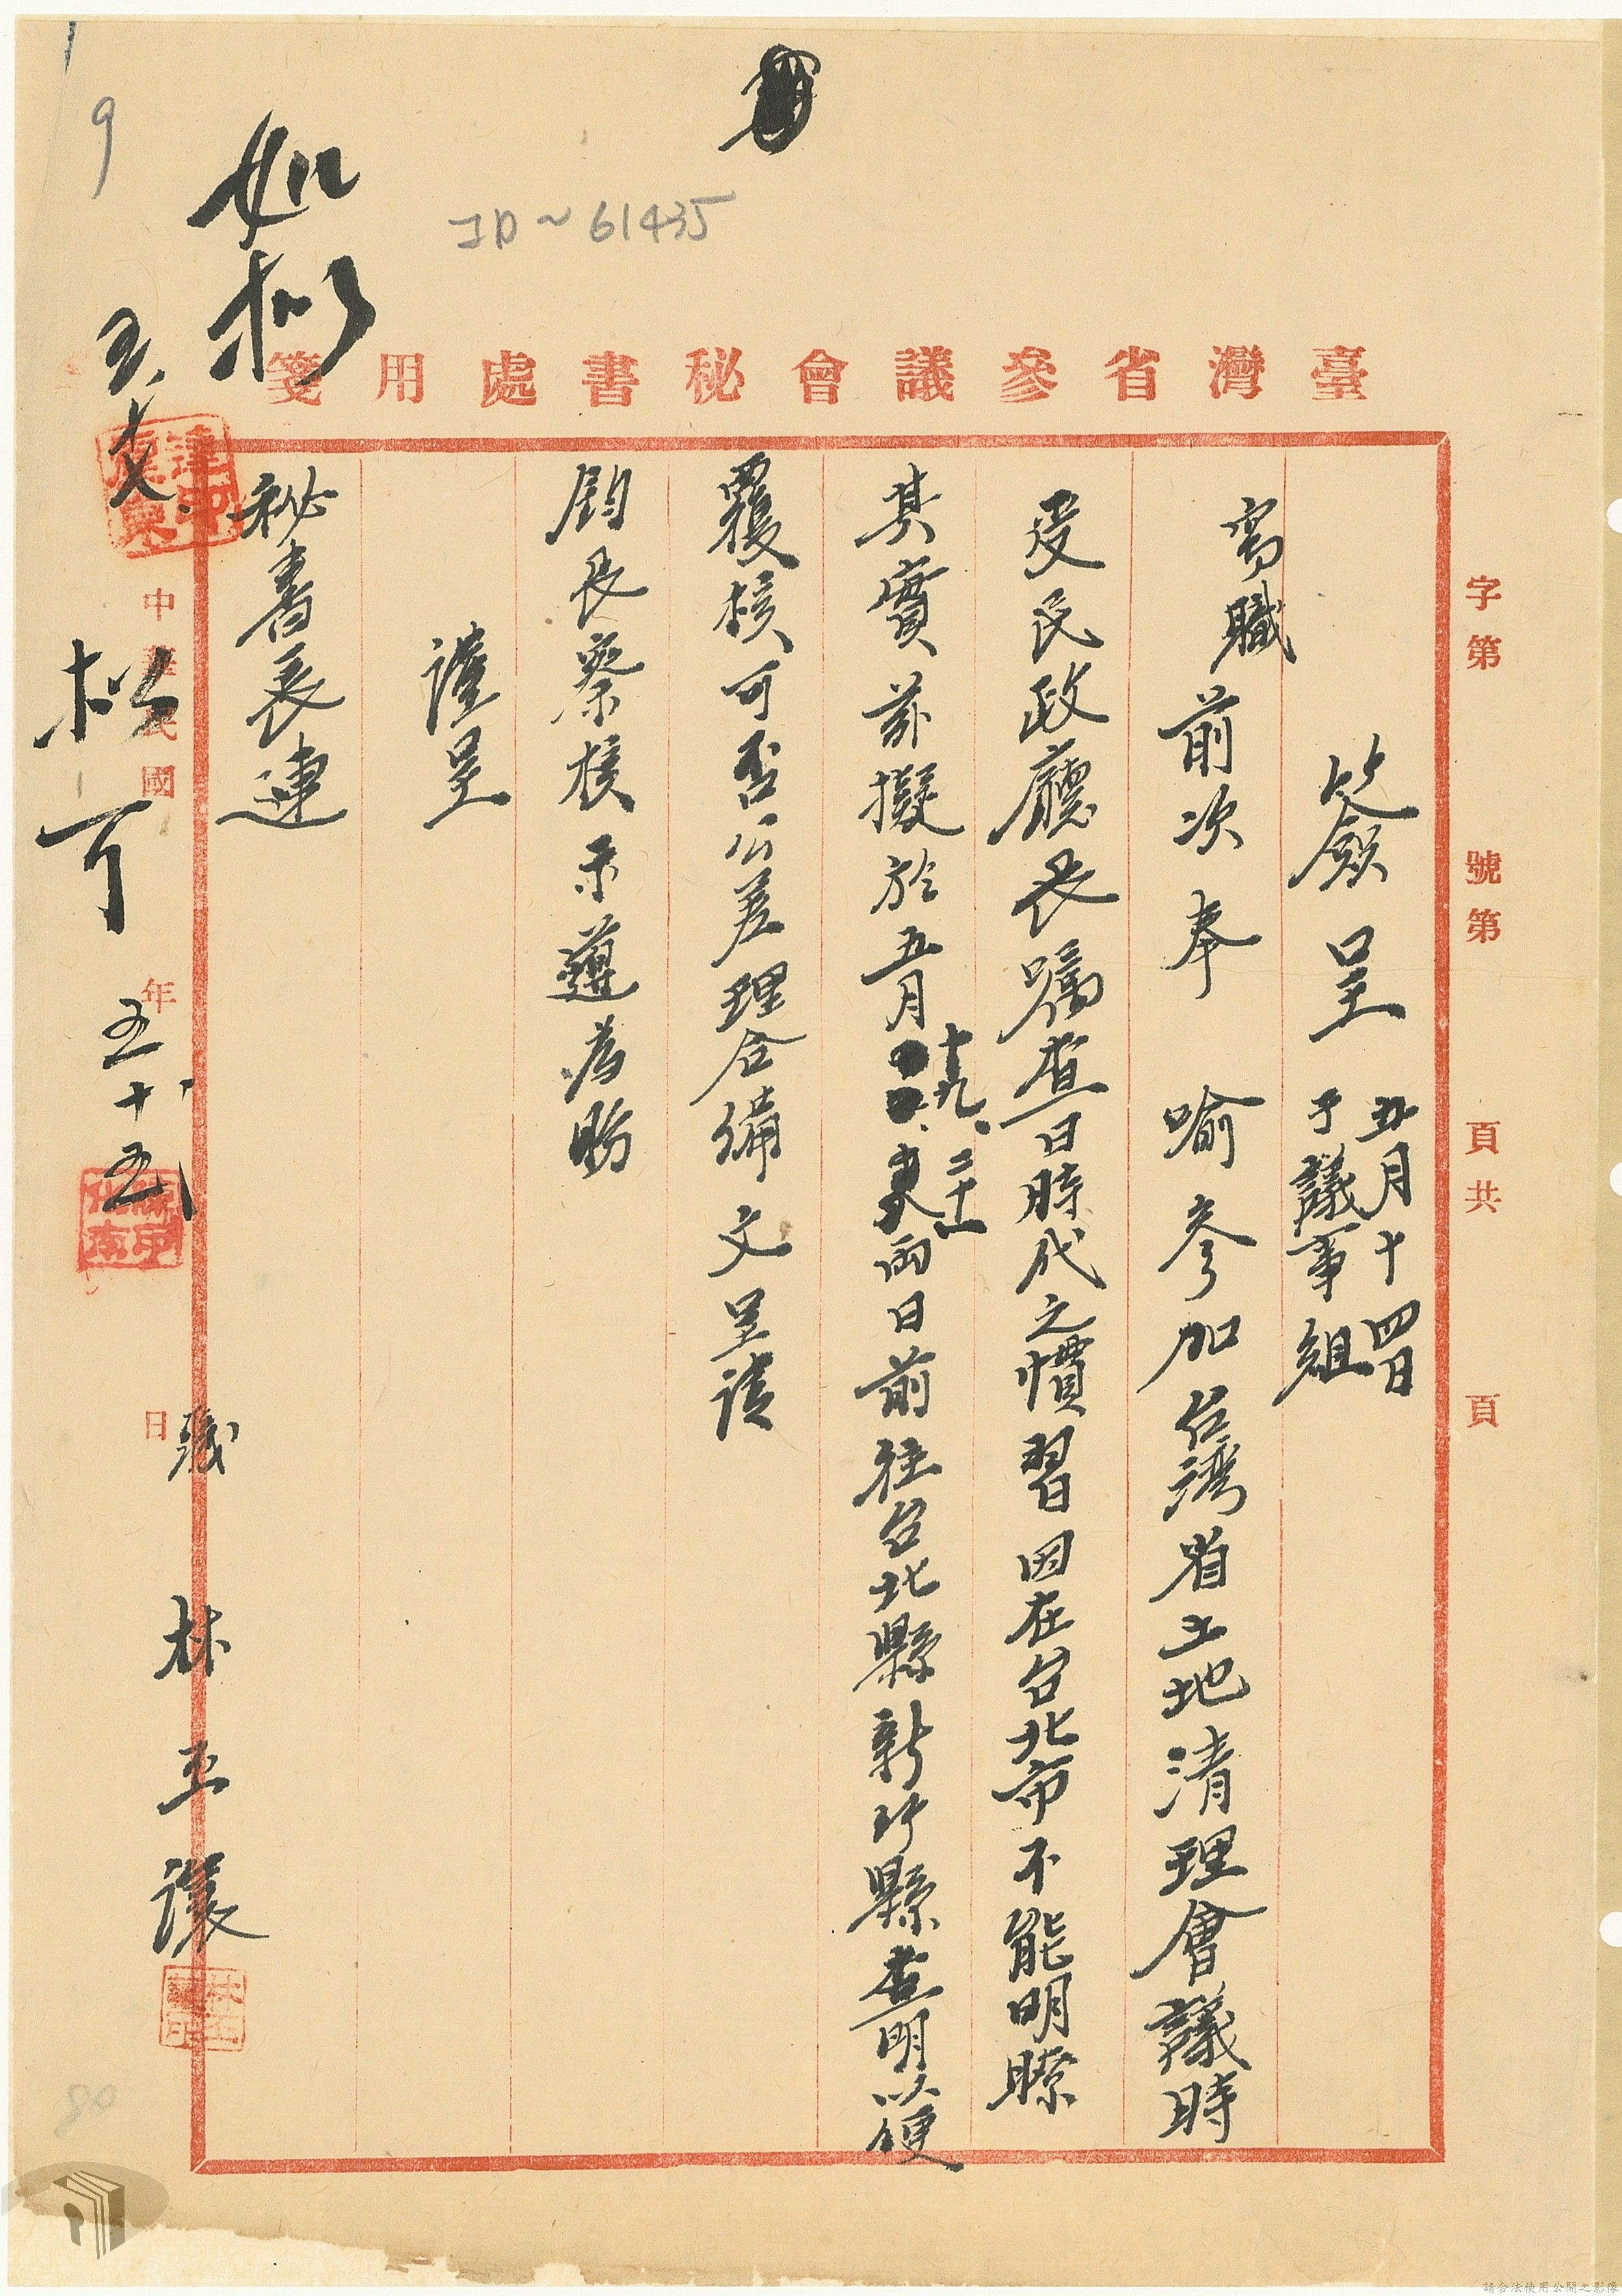 臺灣省參議會秘書處用箋
字第 號第 頁共 頁
簽呈 五月十四日
于議事組
竊職前次奉 喻參加台灣省土地清理會議時
受民政廳長囑查日時代之慣習因在台北市不能明瞭
其實茲擬於五月十九、二十一兩日前往台北縣新竹縣查明以便
覆核可否公差理合備文呈請
鈞長察核示遵為盼
謹呈
祕書長連
職 林玉讓
中華民國 年 日
如擬
擬可
五十五
ID~61435
9
90
請合法使用公開之影像